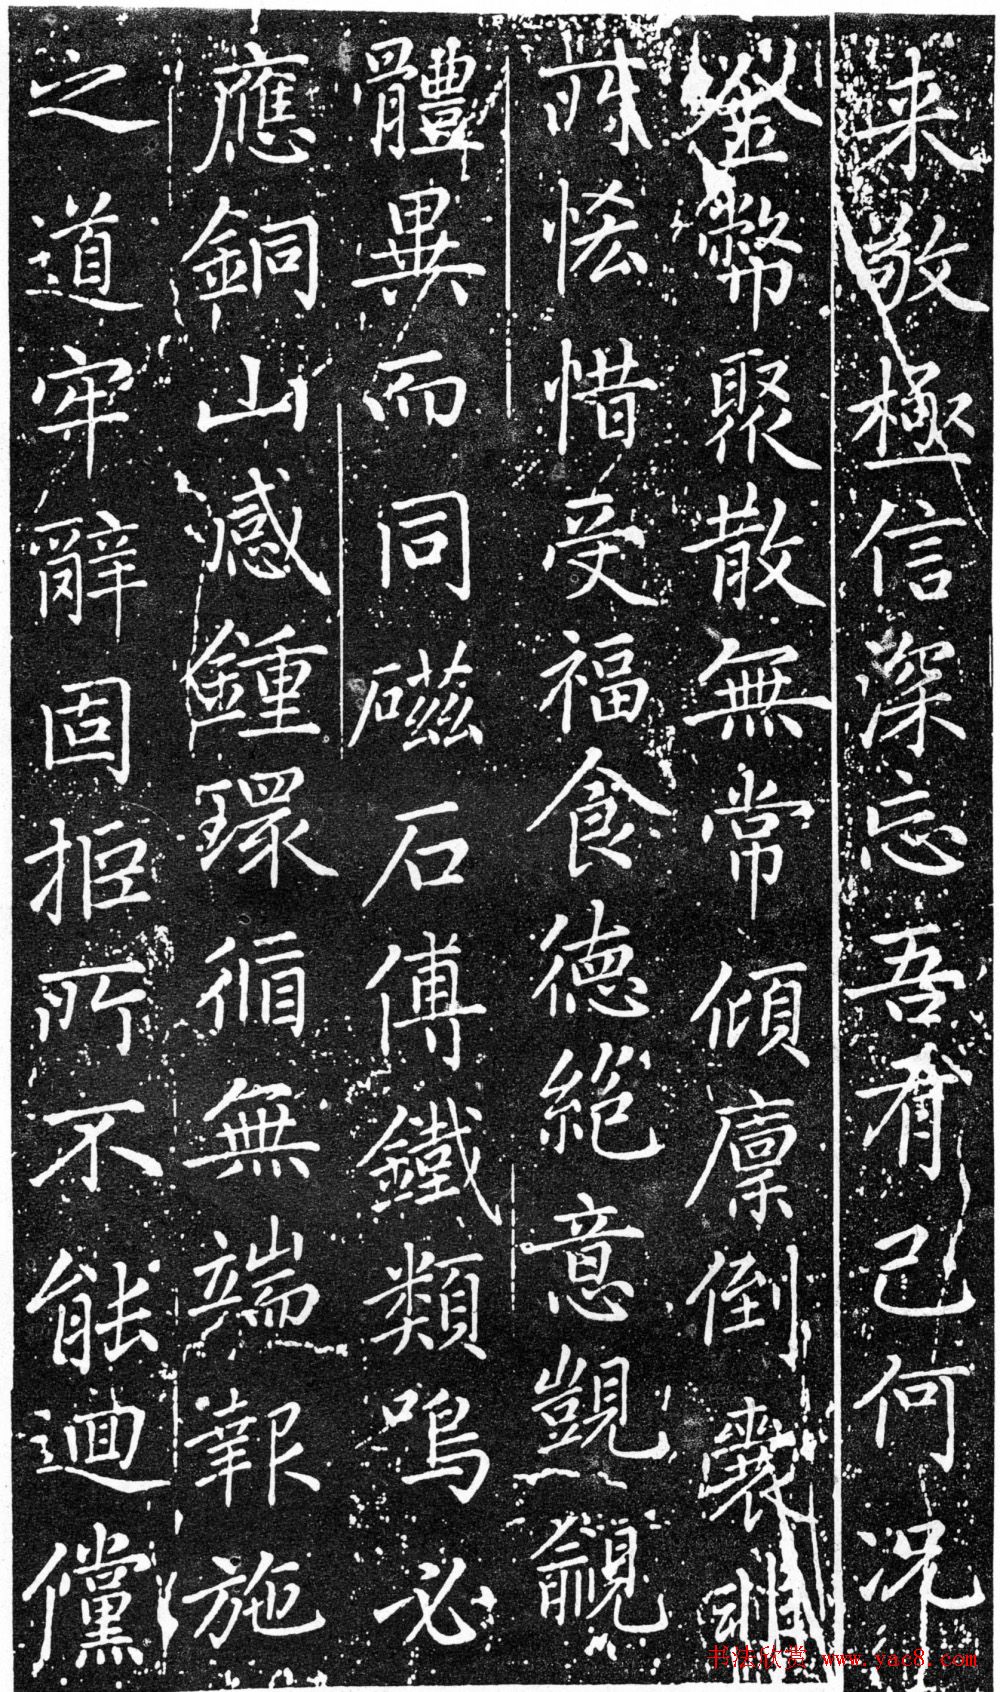 来敬極信深忘吾有己何況
金幣聚散無常傾廩倒囊難
所悋惜受福食德絕意覬覦
體異而同磁石傅鐵類鳴必
應銅山感鍾環循無端報施
之道牢辭固拒所不能迴儻
书法欣赏 www.yac8.com